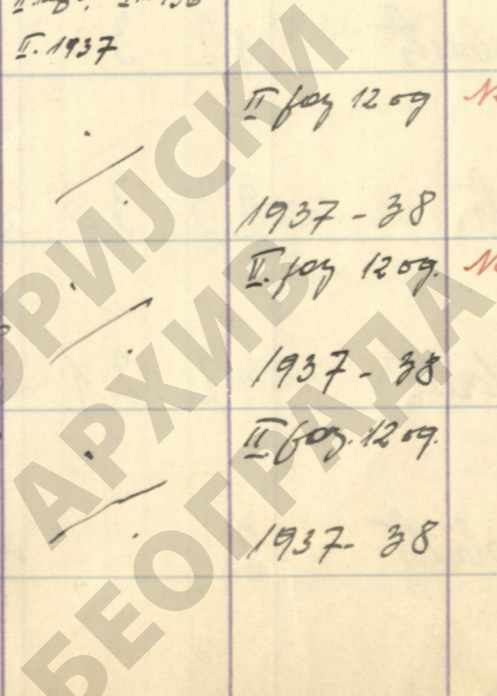 II. 1937
II раз 12 од
1937 - 38
II. раз 12 од.
1937 - 38
II раз. 12 од.
1937 - 38
ИСТОРИЈСКИ
АРХИВ
БЕОГРАДА